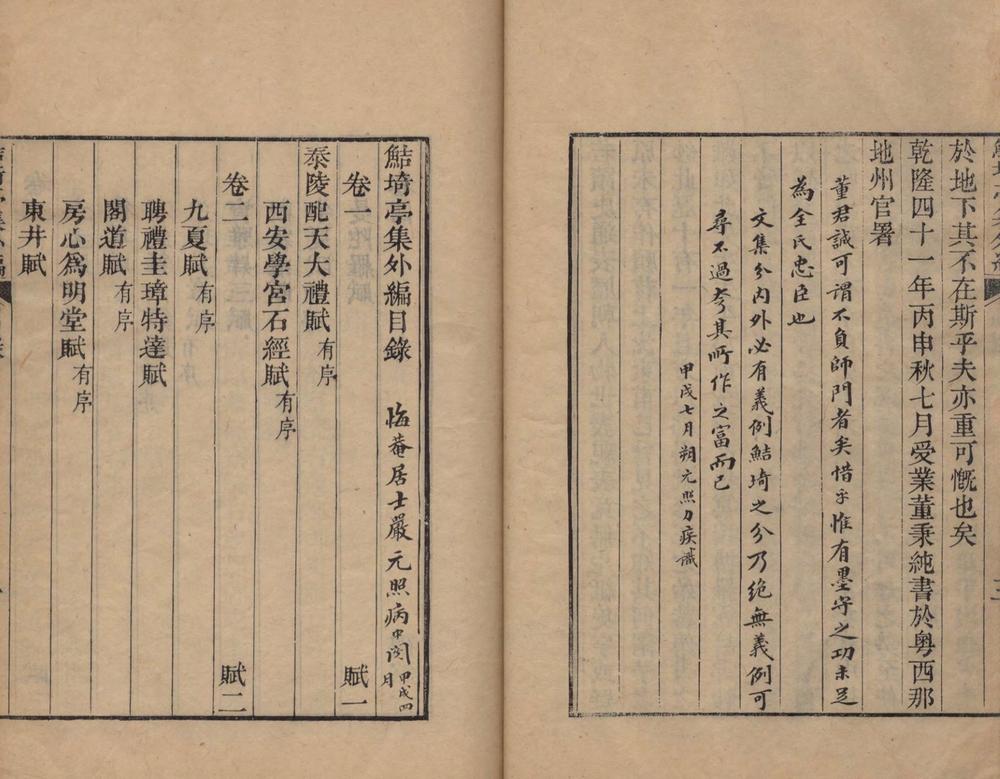 於地下其不在斯乎夫亦重可慨也矣
乾隆四十一年丙申秋七月受業董秉純書於粵西那
地州官署
董君誠可謂不負師門者矣惜乎惟有墨守之功未足
為全氏忠臣也
文集分内外必有義例鮚埼之分乃絶無義例可
尋不過夸其所作之富而已
甲戌七月朔元照力疾識
鮚埼亭集外編目錄 悔菴居士嚴元照病中閱 甲戌四月
卷一 賦一
泰陵配天大禮賦 有序
西安學宮石經賦 有序
卷二 賦二
九夏賦 有序
聘禮圭璋特達賦
閣道賦 有序
房心爲明堂賦 有序
東井賦